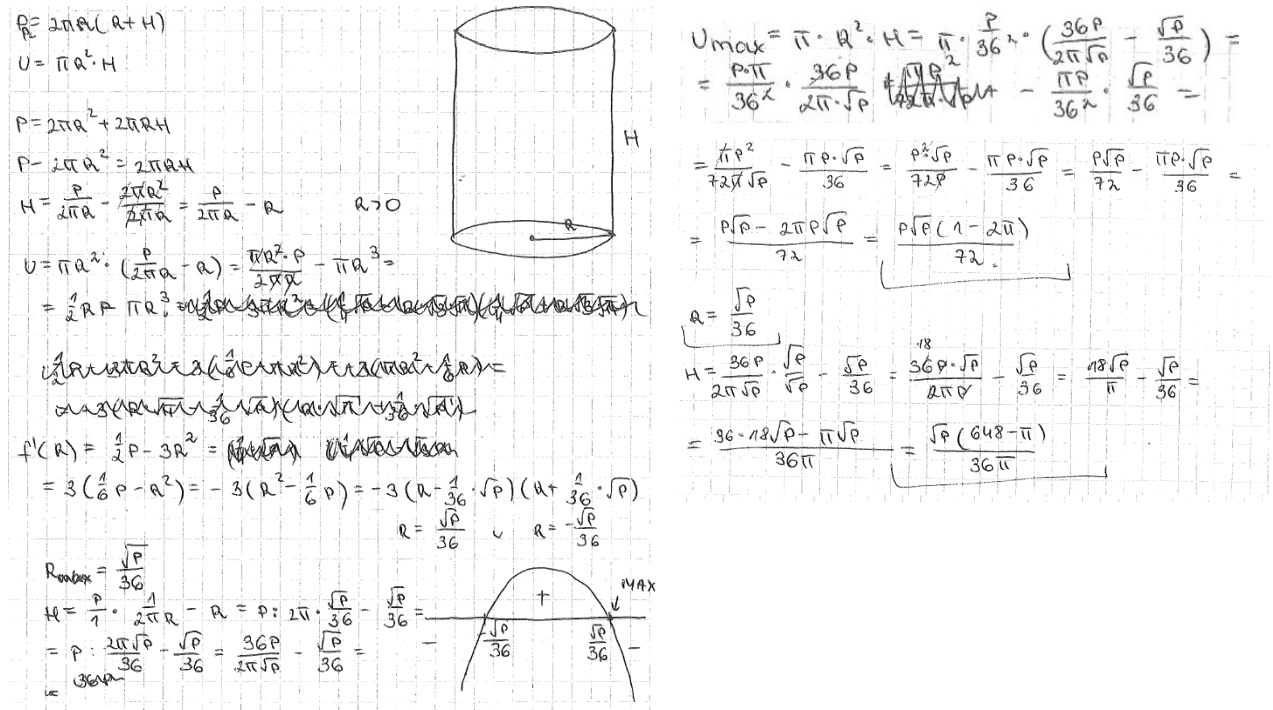 P = 2πR(R+H)
V = πR²·H
P = 2πR² + 2πRH
P - 2πR² = 2πRH
H = P/2πR - 2πR²/2πR = P/2πR - R    R>0
V = πR²·(P/2πR - R) = πR²·P/2πR - πR³ =
= 1/2 RP - πR³
f'(R) = 1/2 P - 3R² =
= 3(1/6 P - R²) = -3(R² - 1/6 P) = -3(R - 1/36·√P)(R + 1/36·√P)
R = √P/36 ∪ R = -√P/36
Rmax = √P/36
H = P/1 · 1/2πR - R = P : 2π·√P/36 - √P/36 =
= P : 2π√P/36 - √P/36 = 36P/2π√P - √P/36 =
H
R
MAX
+
- -
-√P/36 √P/36
Vmax = π·R²·H = π·P/36²·(36P/2π√P - √P/36) =
= P·π/36² · 36P/2π·√P - πP/36² · √P/36 =
= πP²/72π√P - πP·√P/36 = P²·√P/72P - πP·√P/36 = P√P/72 - πP·√P/36 =
= P√P - 2πP√P/72 = P√P(1-2π)/72
R = √P/36
H = 36P/2π√P · √P/√P - √P/36 = 36P·√P/2πP - √P/36 = 18√P/π - √P/36 =
= 36·18√P - π√P/36π = √P(648-π)/36π